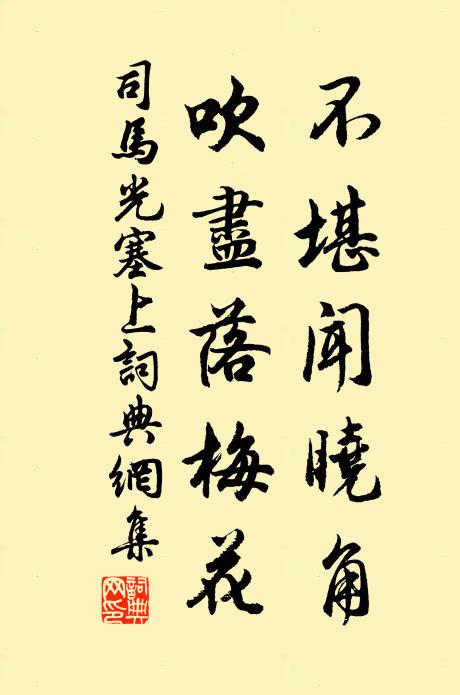 不堪聞曉角
吹盡落梅花
司馬光塞上詞典網集
詞典网印